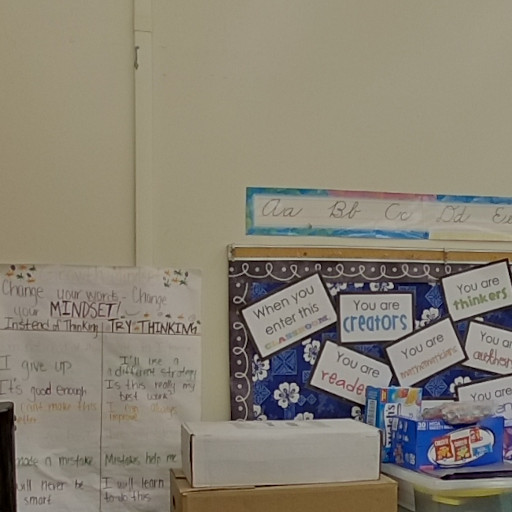 Aa Bb Cc Dd Ee
Change your words - Change
your MINDSET!
Instead of Thinking TRY THINKING
I give up
I'll use a
different strategy
It's good enough
Is this really my
best work?
I can't make this
better
I can always
improve
made a mistake
Mistakes help me
will never be
smart
I will learn
to do this
When you
enter this
CLASSROOM
You are
creators
You are
thinkers
You are
reade
You are
mathematicians
You are
author
You are